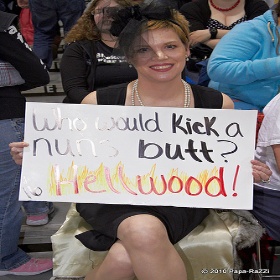 Who would Kick a
nuns butt?
Hellwood!
© 2010 Papa-RaZZi